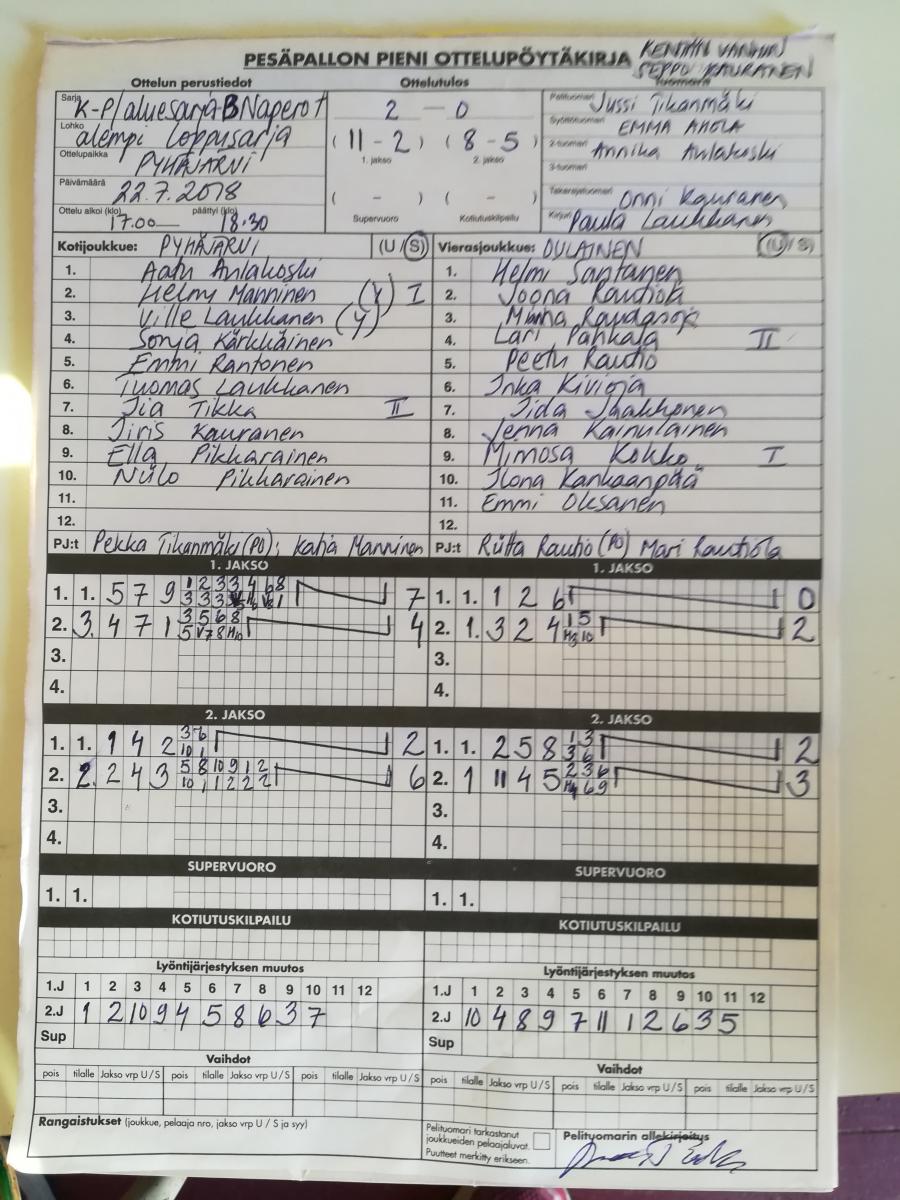 PESÄPALLON PIENI OTTELUPÖYTÄKIRJA
KENTÄN VANHIN
SEPPO KAURANEN
Ottelun perustiedot Ottelutulos
Sarja K-P/aluesarja B Naperot
Lohko alempi loppusarja
Ottelupaikka PYHÄJÄRVI
Päivämäärä 22.7.2018
Ottelu alkoi (klo) 17.00 päättyi (klo) 18.30
2 — 0
(11 - 2) (8 - 5)
1. jakso 2. jakso
( - ) ( - )
Supervuoro Kotiutuskilpailu
Pelituomari Jussi Tikanmäki
Syöttötuomari EMMA AHOLA
2-tuomari Annika Anlakoski
3-tuomari
Takarajatuomari Onni Kauranen
Kirjuri Paula Laukkanen
Kotijoukkue: PYHÄJÄRVI (U/S)
1. Aatu Anlakoski
2. Helmi Manninen (Y) I
3. Ville Laukkanen (Y)
4. Sonja Kärkkäinen
5. Emmi Rantonen
6. Tuomas Laukkanen
7. Jia Tikka II
8. Jiris Kauranen
9. Ella Pikkarainen
10. Niilo Pikkarainen
11.
12.
PJ:t Pekka Tikanmäki (PO); Katja Manninen
Vierasjoukkue: OULAINEN (U/S)
1. Helmi Santanen
2. Joona Rautiola
3. Minna
4. Lari Pahkala II
5. Peetu Rautio
6. Inka Kivioja
7. Iida Jaakkonen
8. Jenna Kainulainen
9. Mimosa Kokko I
10. Ilona Kankaanpää
11. Emmi Oksanen
12.
PJ:t Riitta Rautio (PO) Mari Rautiola
1. JAKSO
1. 1. 5 7 9 7
2. 3. 4 7 1 3 5 6 8 4
3.
4.
1. JAKSO
1. 1. 1 2 6 0
2. 1. 3 2 4 1 5 2
3.
4.
2. JAKSO
1. 1. 1 4 2 3 6 2
10 1
2. 2. 2 4 3 5 8 10 9 1 2 6
10 1 1 2 2 2
3.
4.
2. JAKSO
1. 1. 2 5 8 1 3 2
3 6
2. 1 11 4 5 2 3 6 3
3.
4.
SUPERVUORO
1. 1.
SUPERVUORO
1. 1.
KOTIUTUSKILPAILU
KOTIUTUSKILPAILU
Lyöntijärjestyksen muutos
1.J 1 2 3 4 5 6 7 8 9 10 11 12
2.J 1 2 10 9 4 5 8 6 3 7
Sup
Lyöntijärjestyksen muutos
1.J 1 2 3 4 5 6 7 8 9 10 11 12
2.J 10 4 8 9 7 11 1 2 6 3 5
Sup
Vaihdot
pois tilalle Jakso vrp U/S pois tilalle Jakso vrp U/S pois tilalle Jakso vrp U/S
Vaihdot
pois tilalle Jakso vrp U/S pois tilalle Jakso vrp U/S pois tilalle Jakso vrp U/S
Rangaistukset (joukkue, pelaaja nro, jakso vrp U / S ja syy)
Pelituomari tarkastanut
joukkueiden pelaajaluvat.
Puutteet merkitty erikseen.
Pelituomarin allekirjoitus